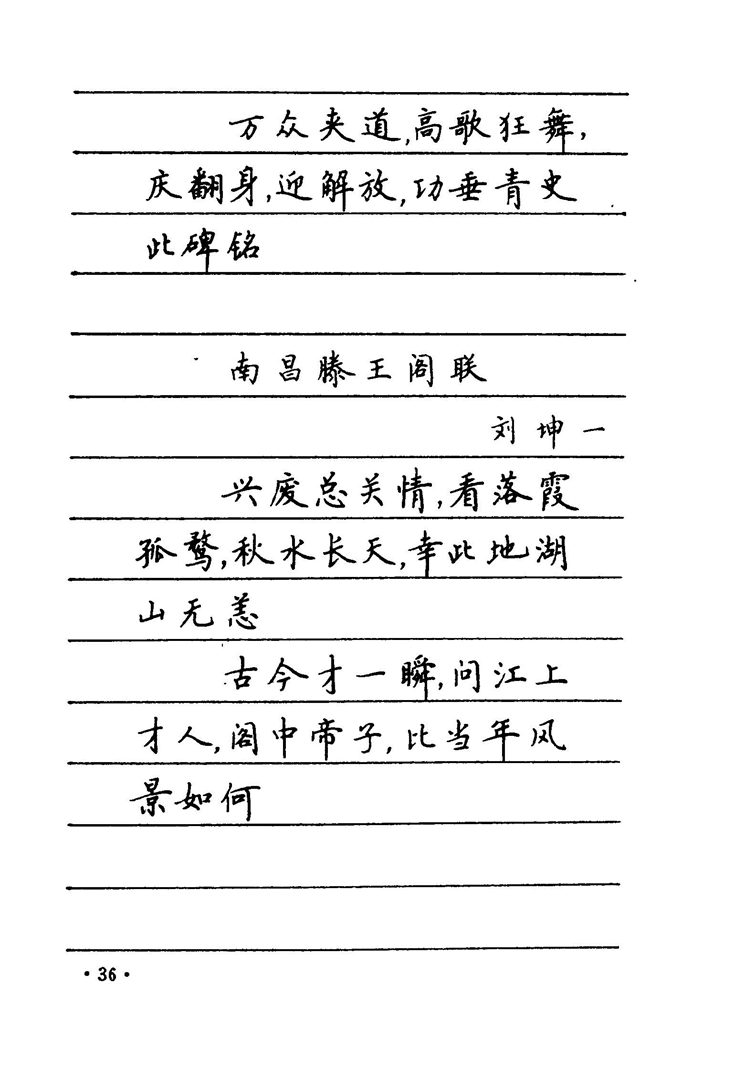 万众夹道,高歌狂舞,
庆翻身,迎解放,功垂青史
此碑铭
南昌滕王阁联
刘坤一
兴废总关情,看落霞
孤鹜,秋水长天,幸此地湖
山无恙
古今才一瞬,问江上
才人,阁中帝子,比当年风
景如何
·36·